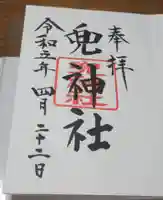 奉拝
兜神社
令和五年 四月二十二日